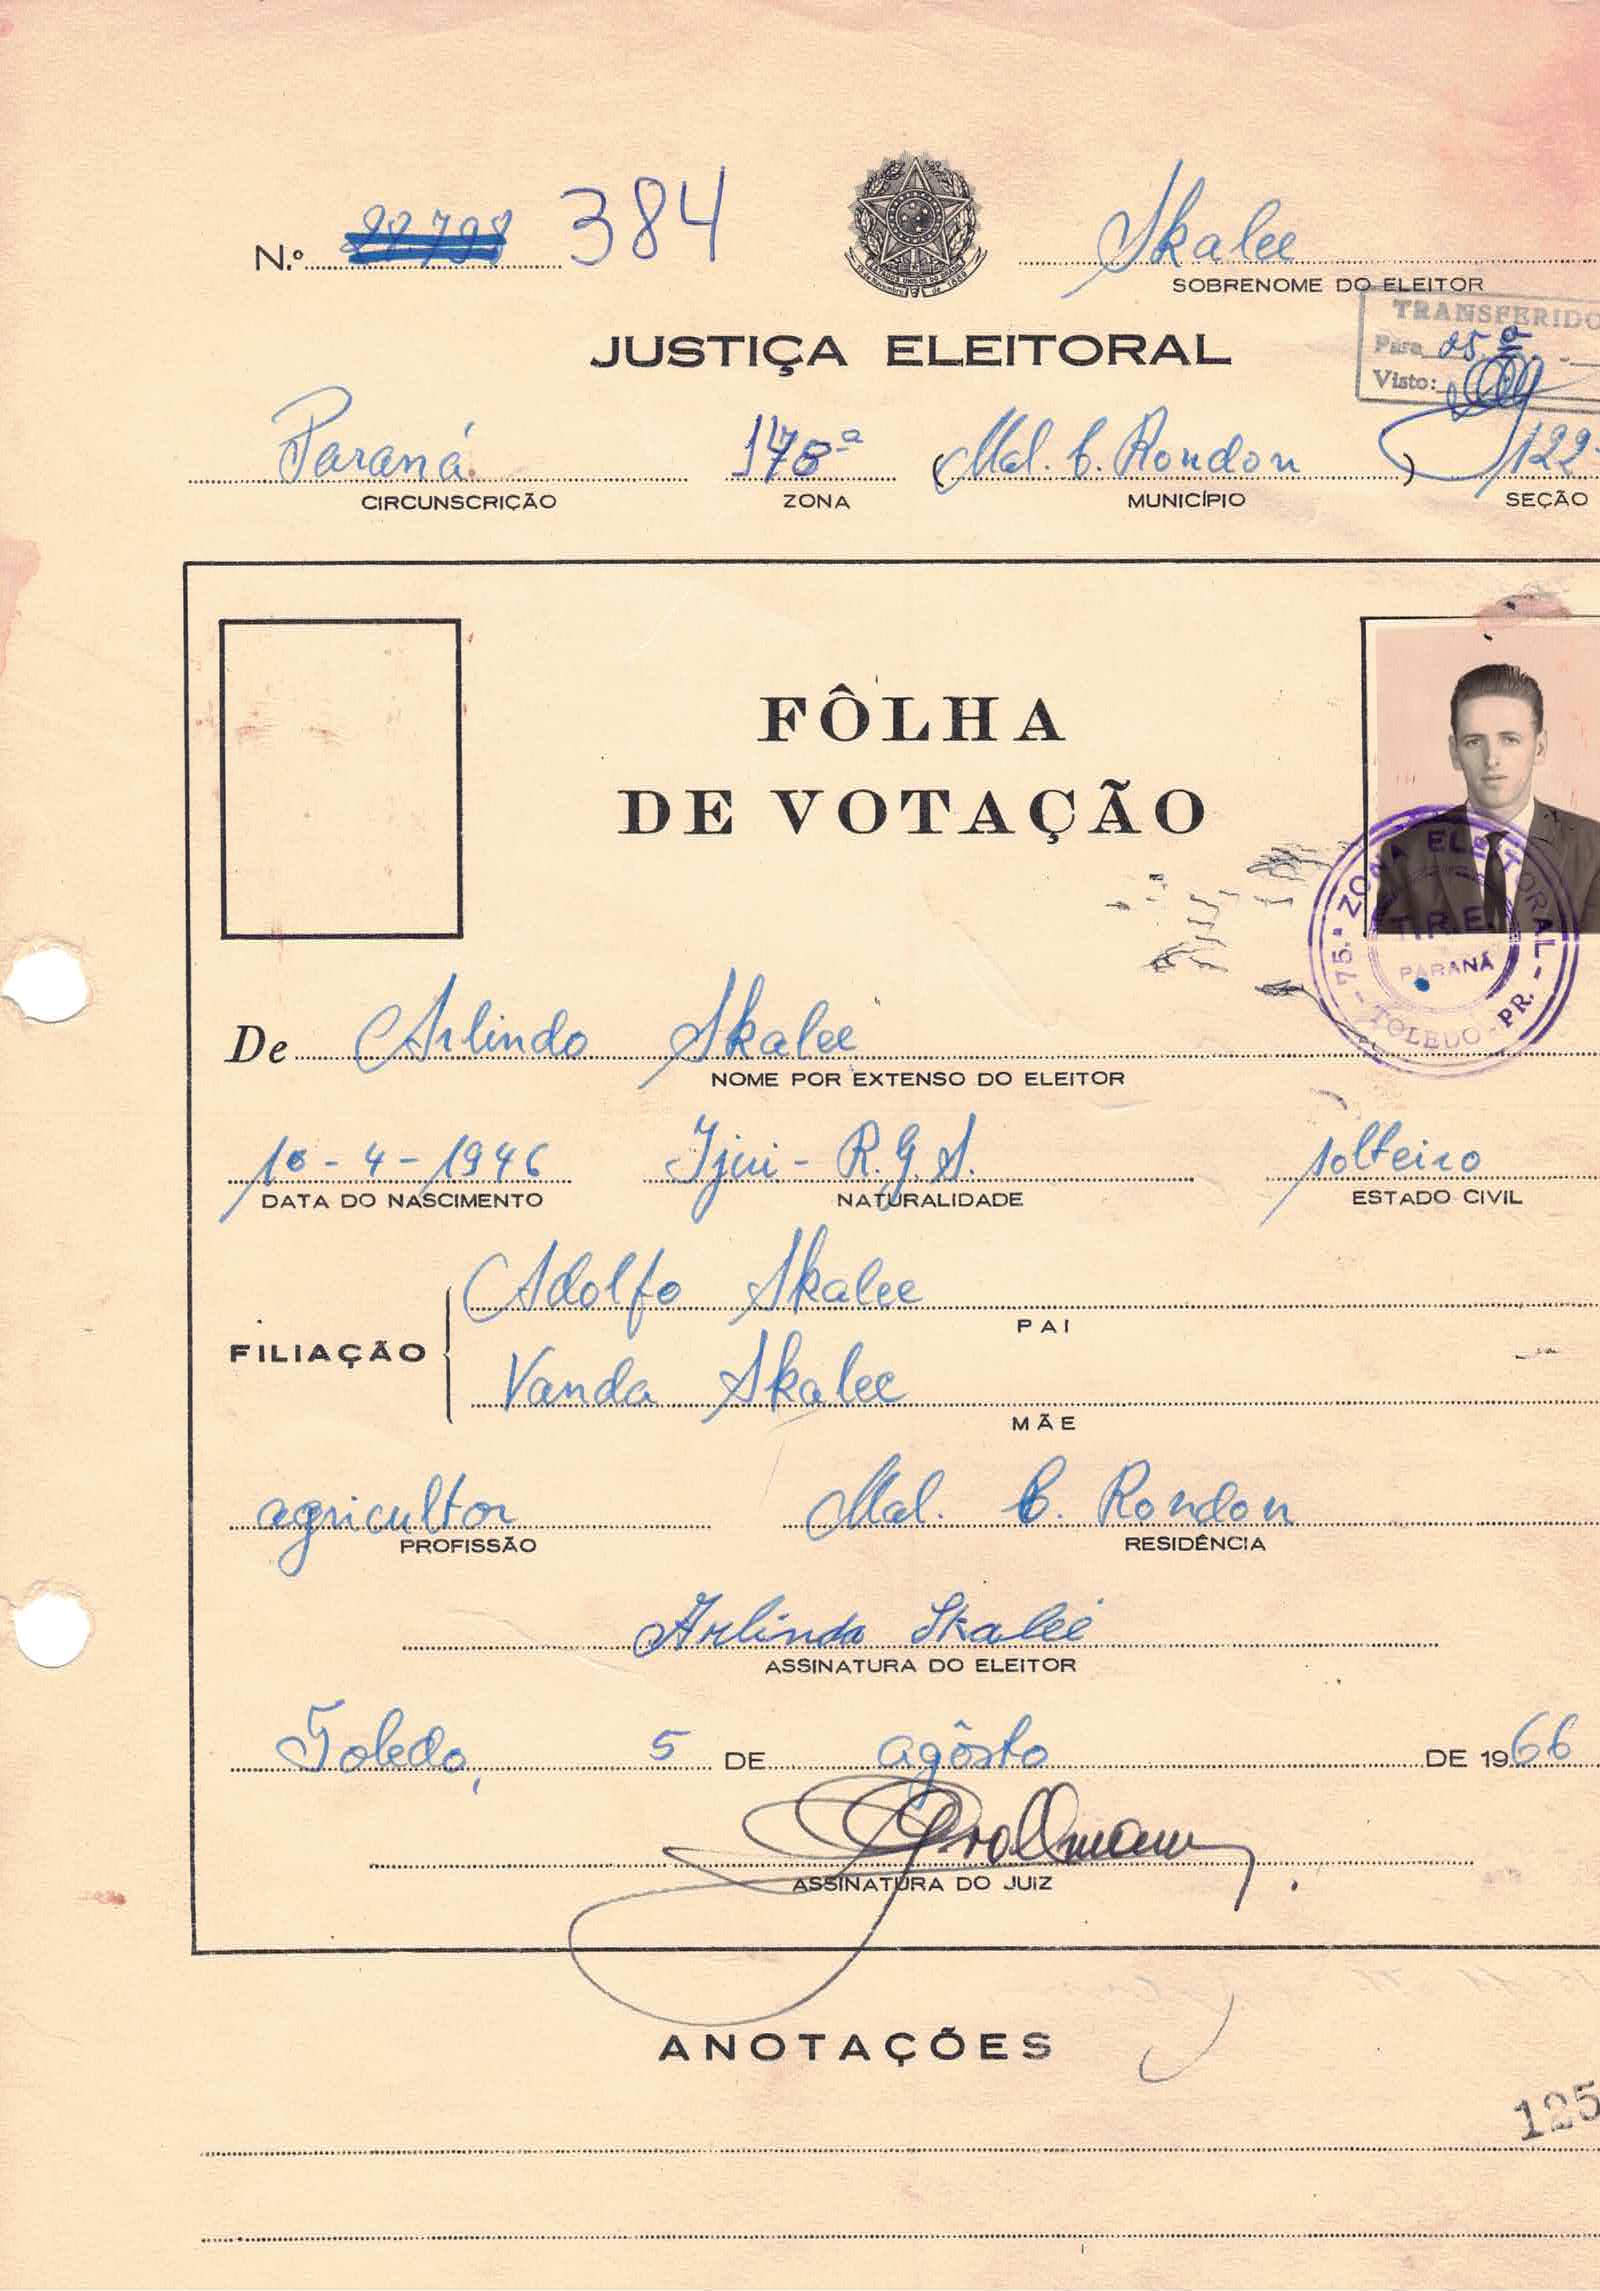 N.º 384
Skalee
SOBRENOME DO ELEITOR
JUSTIÇA ELEITORAL
TRANSFERIDO
Para 25ª
Visto:
Paraná 178ª (Mal. C. Rondon) 122
CIRCUNSCRIÇÃO ZONA MUNICÍPIO SEÇÃO
FÔLHA
DE VOTAÇÃO
75.ª ZONA ELEITORAL - TOLEDO - PR. -
T.R.E.
PARANÁ
De Arlindo Skalee
NOME POR EXTENSO DO ELEITOR
10-4-1946 Ijui - R.G.S. solteiro
DATA DO NASCIMENTO NATURALIDADE ESTADO CIVIL
Adolfo Skalee
PAI
FILIAÇÃO
Vanda Skalee
MÃE
agricultor Mal. C. Rondon
PROFISSÃO RESIDÊNCIA
Arlindo Skalee
ASSINATURA DO ELEITOR
Toledo, 5 DE agôsto DE 1966
ASSINATURA DO JUIZ
ANOTAÇÕES
125